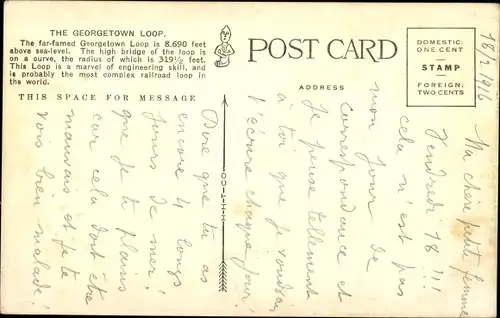 THE GEORGETOWN LOOP.
The far-famed Georgetown Loop is 8,690 feet
above sea-level. The high bridge of the loop is
on a curve, the radius of which is 319½ feet.
This Loop is a marvel of engineering skill, and
is probably the most complex railroad loop in
the world.
POST CARD
DOMESTIC:
ONE CENT
STAMP
FOREIGN:
TWO CENTS
THIS SPACE FOR MESSAGE
ADDRESS
O-T-A-H-I-I
18/2 1916
Ma chère petite femme
Vendredi 18 !!!
cela n'est pas
mon jour de
correspondance et
je pense tellement
à toi que je voudrais
t'écrire chaque jour!
Dire que tu as
encore 4 longs
jours de mer!
que je te plains
car cela doit être
mauvais et je te
vois bien malade!